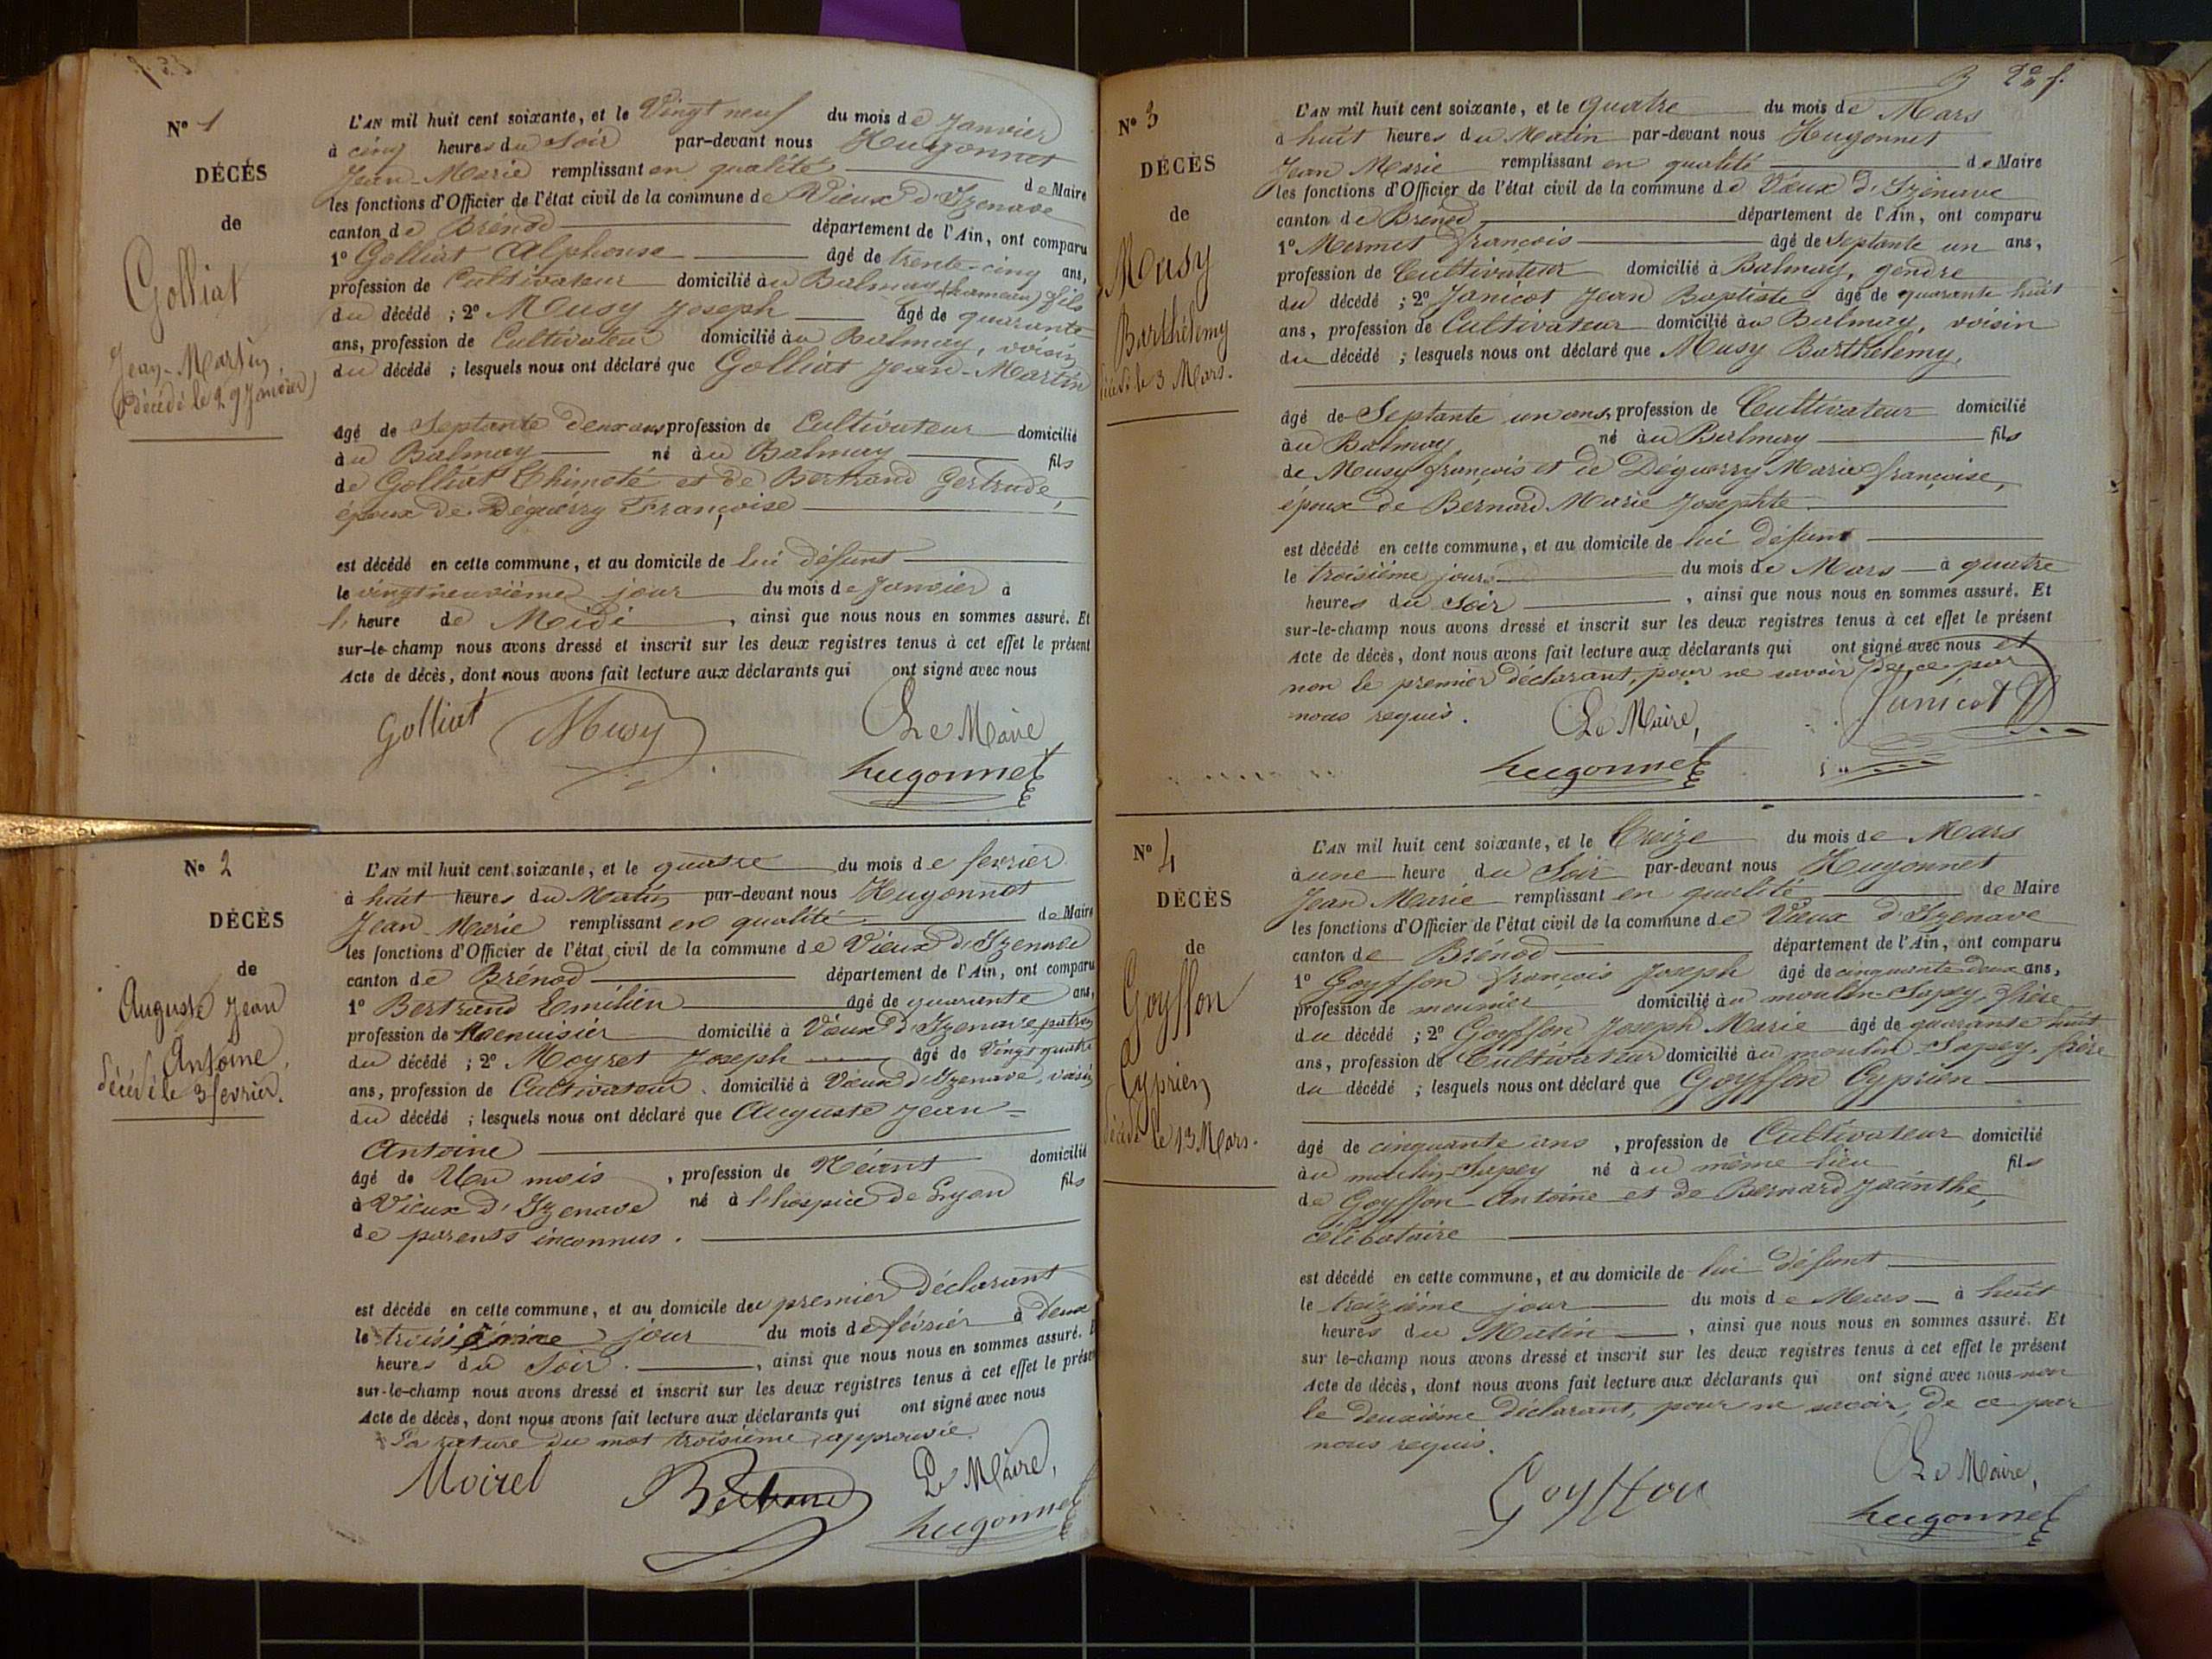 Nº 1
DÉCÉS
de
Golliat
Jean-Martin
(décédé le 29 Janvier)
L'AN mil huit cent soixante, et le Vingt neuf du mois de Janvier
à cinq heures du Soir par-devant nous Hugonnet
Jean-Marie remplissant en qualité de Maire
les fonctions d'Officier de l'état civil de la commune de Vieux d'Izenave
canton de Brénod département de l'Ain, ont comparu
1º Golliat Alphonse âgé de trente-cinq ans,
profession de Cultivateur domicilié au Balmay (hameau) fils
du décédé ; 2º Musy Joseph âgé de quarante
ans, profession de Cultivateur domicilié au Balmay, voisin
du décédé ; lesquels nous ont déclaré que Golliat Jean-Martin
âgé de Septante deux ans profession de Cultivateur domicilié
au Balmay né au Balmay fils
de Golliat Thimoté et de Bertrand Gertrude,
époux de Déguérry Françoise
est décédé en cette commune, et au domicile de lui défunt
le vingt neuvième jour du mois de Janvier à
l' heure de Midi , ainsi que nous nous en sommes assuré. Et
sur-le-champ nous avons dressé et inscrit sur les deux registres tenus à cet effet le présent
Acte de décès, dont nous avons fait lecture aux déclarants qui ont signé avec nous
Golliat Musy Le Maire
hugonnet
Nº 2
DÉCÈS
de
Auguste Jean
Antoine
décédé le 3 fevrier.
L'AN mil huit cent soixante, et le quatre du mois de fevrier
à huit heures du Matin par-devant nous Hugonnet
Jean-Marie remplissant en qualité de Maire
les fonctions d'Officier de l'état civil de la commune de Vieux d'Izenave
canton de Brénod département de l'Ain, ont comparu
1º Bertrand Emilien âgé de quarante ans,
profession de Menuisier domicilié à Vieux d'Izenave, patron
du décédé ; 2º Moyret Joseph âgé de Vingt quatre
ans, profession de Cultivateur domicilié à Vieux d'Izenave, voisin
du décédé ; lesquels nous ont déclaré que Auguste Jean-
Antoine
âgé de Un mois , profession de Néant domicilié
à Vieux d'Izenave né à l'hospice de Lyon fils
de parents inconnus.
est décédé en cette commune, et au domicile du premier déclarant
le troisième jour du mois de février à deux
heures du Soir. , ainsi que nous nous en sommes assuré. E
sur-le-champ nous avons dressé et inscrit sur les deux registres tenus à cet effet le présen
Acte de décès, dont nous avons fait lecture aux déclarants qui ont signé avec nous
La rature du mot troisième, approuvée.
Moirel Bertrand Le Maire,
hugonnet
3 2e f.
Nº 3
DÉCÈS
de
Musy
Barthélemy
décédé le 3 Mars.
L'AN mil huit cent soixante, et le quatre du mois de Mars
à huit heures du Matin par-devant nous Hugonnet
Jean Marie remplissant en qualité de Maire
les fonctions d'Officier de l'état civil de la commune de Vieux d'Izenave
canton de Brénod département de l'Ain, ont comparu
1º Mermet françois âgé de Septante un ans,
profession de Cultivateur domicilié à Balmay, gendre
du décédé ; 2º Janicot Jean Baptiste âgé de quarante huit
ans, profession de Cultivateur domicilié au Balmay, voisin
du décédé ; lesquels nous ont déclaré que Musy Barthélemy,
âgé de Septante un ans, profession de Cultivateur domicilié
au Balmay né au Balmay fils
de Musy françois et de Déguerry Marie françoise,
époux de Bernard Marie Josephte.
est décédé en cette commune, et au domicile de lui défunt
le troisième jour du mois de Mars à quatre
heures du Soir , ainsi que nous nous en sommes assuré. Et
sur-le-champ nous avons dressé et inscrit sur les deux registres tenus à cet effet le présent
Acte de décès, dont nous avons fait lecture aux déclarants qui ont signé avec nous et
non le premier déclarant, pour ne savoir de ce par
nous requis. Le Maire, Janicot
hugonnet
Nº 4
DÉCÈS
de
Goyffon
Cyprien
décédé le 13 Mars.
L'AN mil huit cent soixante, et le Treize du mois de Mars
à une heure du Soir par-devant nous Hugonnet
Jean Marie remplissant en qualité de Maire
les fonctions d'Officier de l'état civil de la commune de Vieux d'Izenave
canton de Brénod département de l'Ain, ont comparu
1º Goyffon françois Joseph âgé de cinquante deux ans,
profession de meunier domicilié au moulin-Sapey, frère
du décédé ; 2º Goyffon Joseph Marie âgé de quarante huit
ans, profession de Cultivateur domicilié au moulin-Sapey, frère
du décédé ; lesquels nous ont déclaré que Goyffon Cyprien
âgé de cinquante ans , profession de Cultivateur domicilié
au moulin-Sapey né au même lieu fils
de Goyffon Antoine et de Bernard Jacinthe,
célibataire
est décédé en cette commune, et au domicile de lui défunt
le treizième jour du mois de Mars à huit
heures du Matin , ainsi que nous nous en sommes assuré. Et
sur le-champ nous avons dressé et inscrit sur les deux registres tenus à cet effet le présent
Acte de décès, dont nous avons fait lecture aux déclarants qui ont signé avec nous non
le deuxième déclarant, pour ne savoir, de ce par
nous requis.
Goyffon Le Maire,
hugonnet